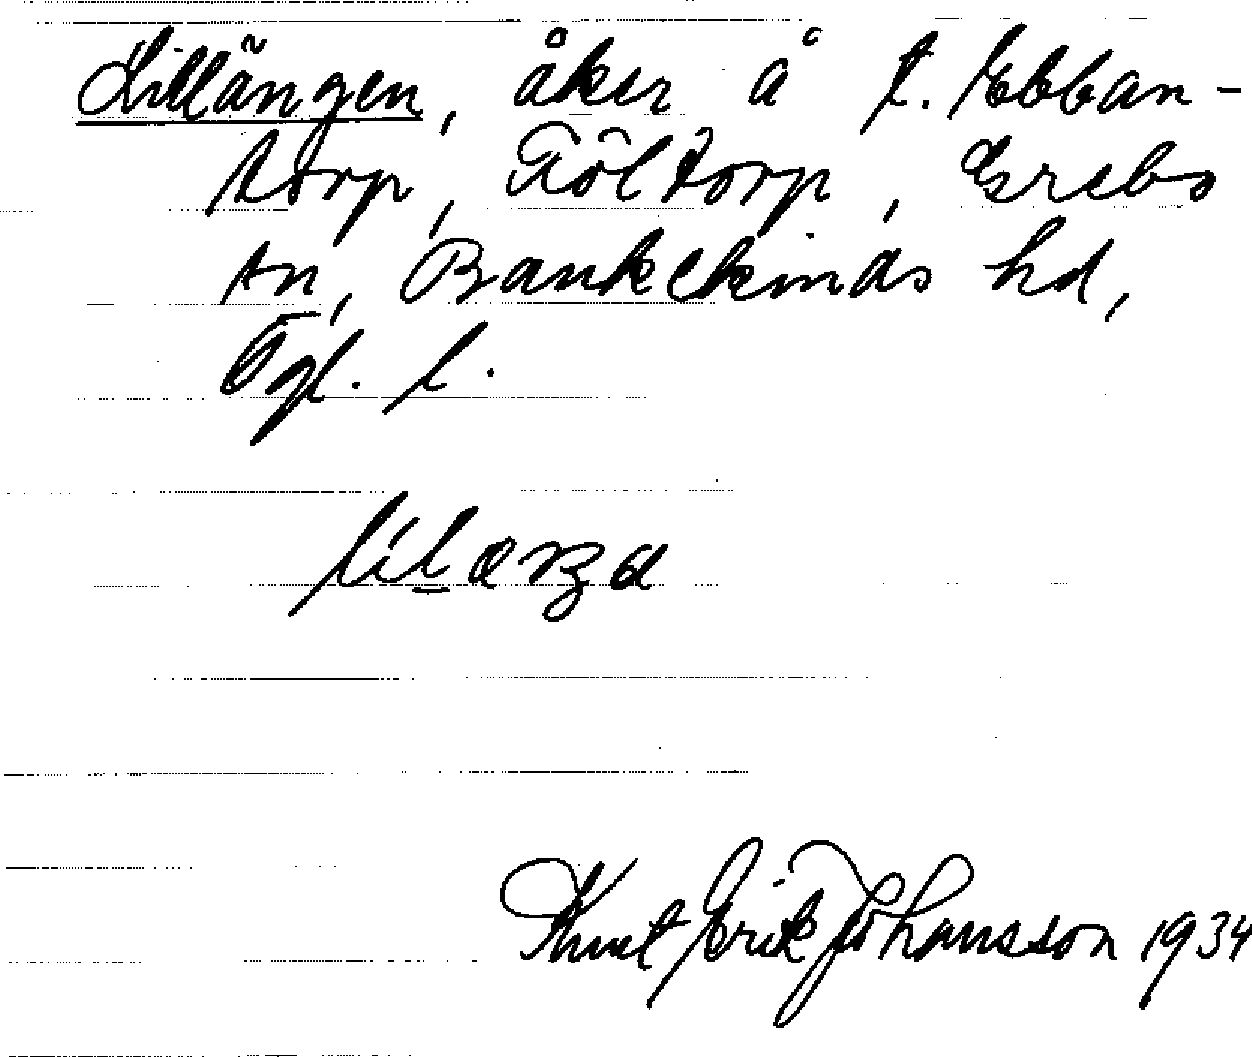 Lillängen, åker å t. Ebban-
torp, Föltorp, Grebo
sn, Bankekinds hd,
Ögl. l.
lílæŋa
Knut Erik Johansson 1934